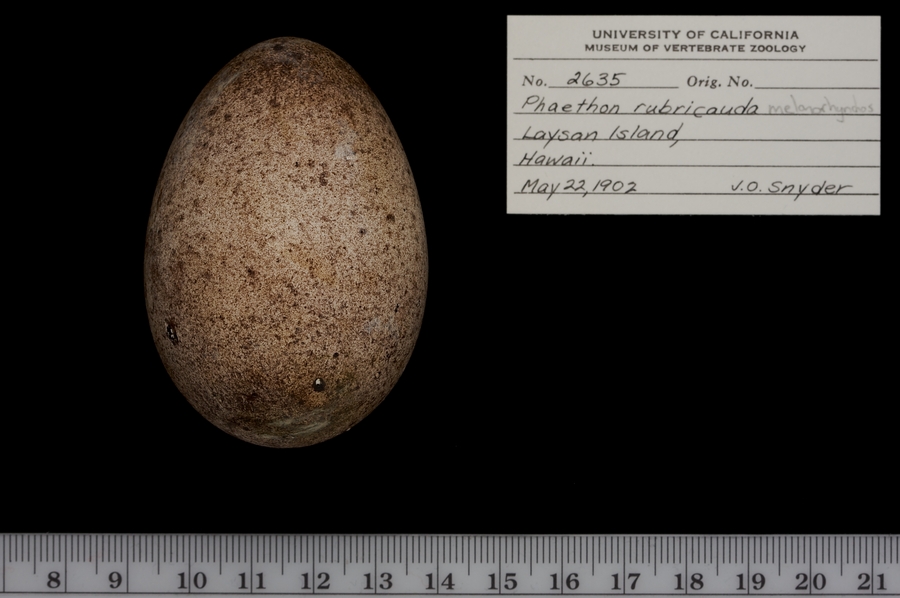 UNIVERSITY OF CALIFORNIA
MUSEUM OF VERTEBRATE ZOOLOGY
No. 2635 Orig. No.
Phaethon rubricauda
Laysan Island,
Hawaii.
May 22, 1902 J.O. Snyder
8 9 10 11 12 13 14 15 16 17 18 19 20 21